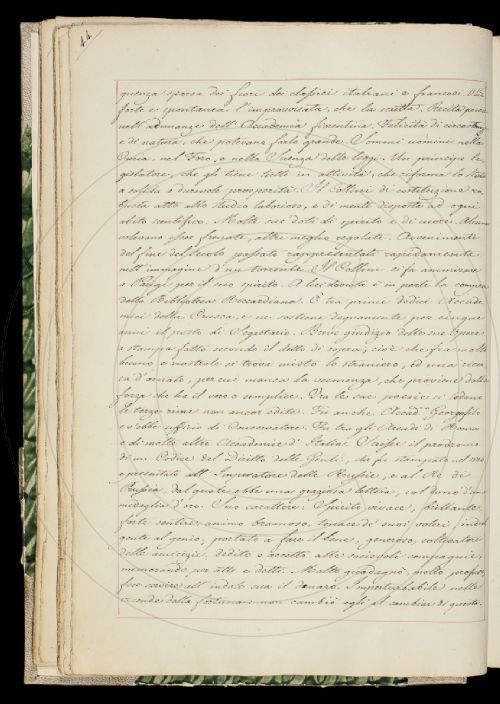 44
quenza sparsa dei fiori dei classici italiani e francesi. Più
forte e spontanea l'improvvisata, che la scritta. Recita prose
nell'adunanze dell'Accademia fiorentina. Felicità di circostanze
e di natura, che potevano farlo grande. Sommi uomini nella
Curia, nel Foro, e nella Scienza delle leggi. Un principe le-
gislatore, che gli tiene tutti in attività, che riforma lo Stato
a solida e durevole prosperità. Il Collini di costituzione ro-
busta atto allo studio laborioso, e di mente disposta ad ogni
abito scentifico. Molte sue doti di spirito e di cuore. Alcune
volevano esser frenate, altre meglio regolate. Avvenimenti
del fine del secolo passato rappresentati rapidamente
nell'immagine d'un torrente. Il Collini si fa ammirare
a Parigi per il suo spirito. A lui dovuta è in parte la compra
della Biblioteca Riccardiana. È tra primi dodici Accade-
mici della Crusca, e ne sostiene degnamente per cinque
anni il posto di Segretario. Breve giudizio delle sue opere
a stampa fatto secondo il detto di sopra; cioè che fra molto
buono e nostrale si trova misto lo straniero, ed una cicer-
ca d'ornato, per cui manca la veemenza, che proviene dalla
forza che ha il vero e semplice. Tra le sue poesie si lodano
le terze rime non ancor edite. Fu anche Accad.co Georgofilo
e v'ebbe ufficio di Conservatore. Fu tra gli Arcadi di Roma
e di molte altre Accademie d'Italia. Scrisse il prodromo
di un Codice del Diritto delle Genti, che fu stampato nel
e presentato all'Imperatore delle Russie, e al Re di
Prussia, dal quale ebbe una graziosa lettera, col dono d'una
medaglia d'oro. Suo carattere: Spirito vivace, brillante,
forte sentire, animo bramoso, tenace di suoi voleri indul-
gente al genio, portato a fare il bene, generoso, coltivatore
delle amicizie, dedito e accetto alle amichevoli compagnie,
memorando per atti e detti. Molto guadagnò, molto profuse,
fece servire all'indole sua il denaro. Imperturbabile nelle
vicende della fortuna non cambiò egli al cambiar di questa.